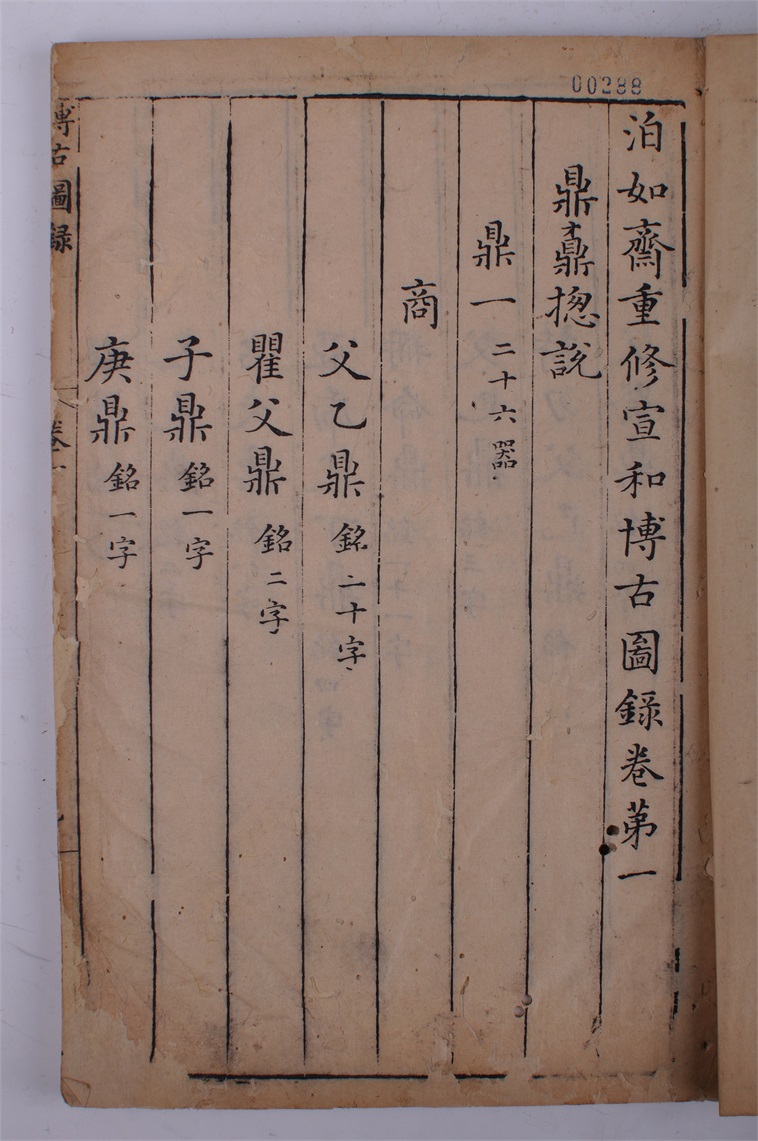 00288
泊如齋重修宣和博古圖錄卷第一
鼎鼒揔說
鼎一 二十六器
商
父乙鼎 銘二十字
瞿父鼎 銘二字
子鼎 銘一字
庚鼎 銘一字
博古圖録
卷一